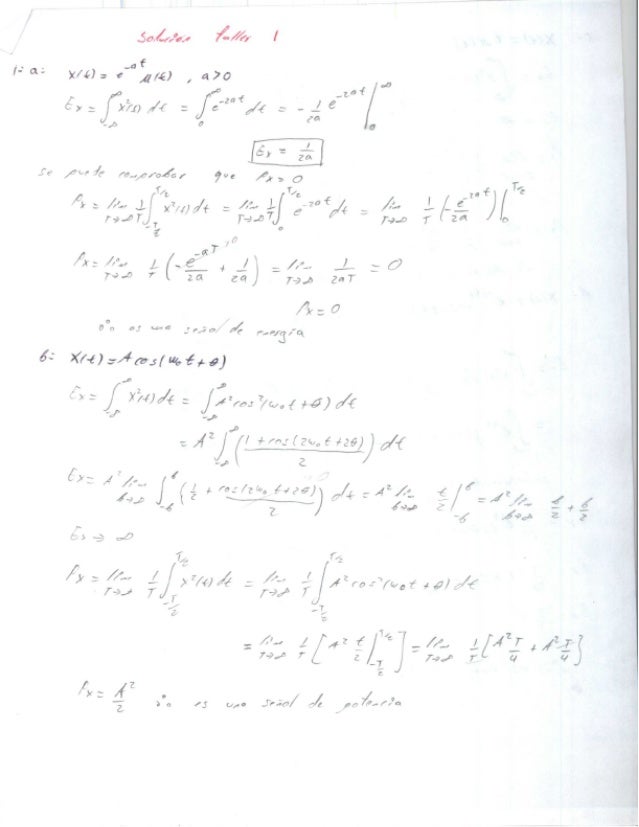 Solución taller 1
1= a: x(t) = e^{-at} u(t) , a>0
Ex = ∫_{-∞}^{∞} x²(t) dt = ∫_{0}^{∞} e^{-2at} dt = -1/2a e^{-2at} |_{0}^{∞}
Ex = 1/2a
se puede comprobar que Px = 0
Px = lim_{T→∞} 1/T ∫_{-T/2}^{T/2} x²(t) dt = lim_{T→∞} 1/T ∫_{0}^{T/2} e^{-2at} dt = lim_{T→∞} 1/T (-e^{-2at}/2a) |_{0}^{T/2}
Px = lim_{T→∞} 1/T (-e^{-aT}/2a + 1/2a) = lim_{T→∞} 1/2aT = 0
Px = 0
∴ es una señal de energía
b= x(t) = A cos(ω₀t + θ)
Ex = ∫_{-∞}^{∞} x²(t) dt = ∫_{-∞}^{∞} A² cos²(ω₀t + θ) dt
= A² ∫_{-∞}^{∞} (1 + cos(2ω₀t + 2θ))/2 dt
Ex = A² lim_{b→∞} ∫_{-b}^{b} (1/2 + cos(2ω₀t + 2θ)/2) dt = A² lim_{b→∞} t/2 |_{-b}^{b} = A² lim_{b→∞} b/2 + b/2
Ex → ∞
Px = lim_{T→∞} 1/T ∫_{-T/2}^{T/2} x²(t) dt = lim_{T→∞} 1/T ∫_{-T/2}^{T/2} A² cos²(ω₀t + θ) dt
= lim_{T→∞} 1/T [A² t/2 |_{-T/2}^{T/2}] = lim_{T→∞} 1/T [A² T/4 + A² T/4]
Px = A²/2 ∴ es una señal de potencia